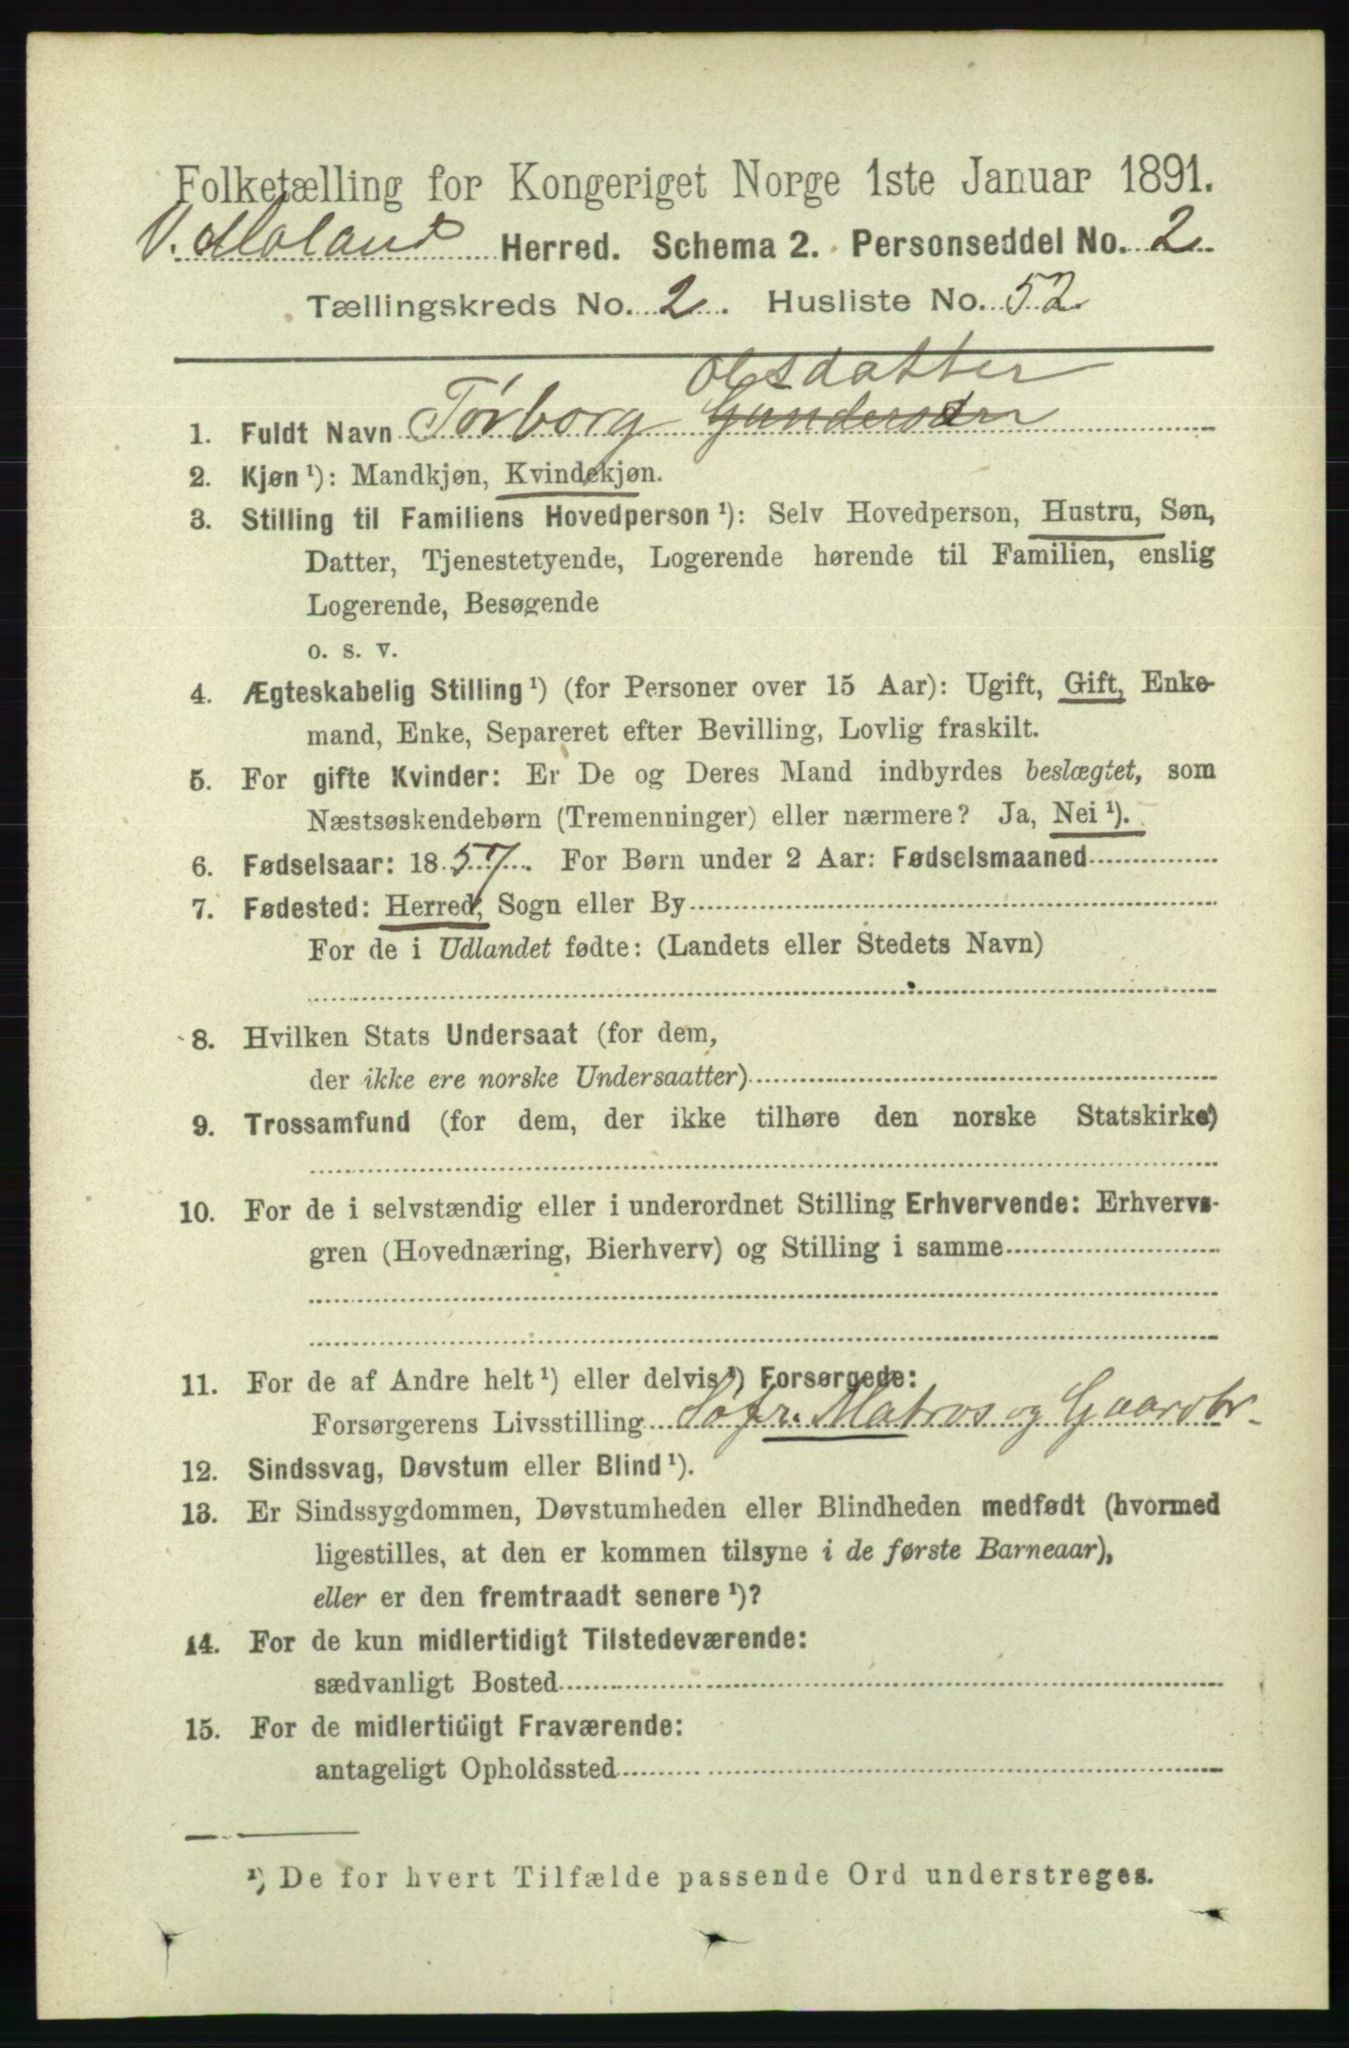 Folketælling for Kongeriget Norge 1ste Januar 1891.
V. Moland Herred. Schema 2. Personseddel No. 2
Tællingskreds No. 2. Husliste No. 52
Olsdatter
1. Fuldt Navn Torborg Gundersen
2. Kjøn ¹): Mandkjøn, Kvindekjøn.
3. Stilling til Familiens Hovedperson ¹): Selv Hovedperson, Hustru, Søn,
Datter, Tjenestetyende, Logerende hørende til Familien, enslig
Logerende, Besøgende
o. s. v.
4. Ægteskabelig Stilling ¹) (for Personer over 15 Aar): Ugift, Gift, Enke-
mand, Enke, Separeret efter Bevilling, Lovlig fraskilt.
5. For gifte Kvinder: Er De og Deres Mand indbyrdes beslægtet, som
Næstsøskendebørn (Tremenninger) eller nærmere? Ja, Nei ¹).
6. Fødselsaar: 1857. For Børn under 2 Aar: Fødselsmaaned
7. Fødested: Herred, Sogn eller By
For de i Udlandet fødte: (Landets eller Stedets Navn)
8. Hvilken Stats Undersaat (for dem,
der ikke ere norske Undersaatter)
9. Trossamfund (for dem, der ikke tilhøre den norske Statskirke)
10. For de i selvstændig eller i underordnet Stilling Erhvervende: Erhvervs-
gren (Hovednæring, Bierhverv) og Stilling i samme
11. For de af Andre helt ¹) eller delvis ¹) Forsørgede:
Forsørgerens Livsstilling Søfr. Matros og Gaardbr.
12. Sindssvag, Døvstum eller Blind ¹).
13. Er Sindssygdommen, Døvstumheden eller Blindheden medfødt (hvormed
ligestilles, at den er kommen tilsyne i de første Barneaar),
eller er den fremtraadt senere ¹)?
14. For de kun midlertidigt Tilstedeværende:
sædvanligt Bosted
15. For de midlertidigt Fraværende:
antageligt Opholdssted
¹) De for hvert Tilfælde passende Ord understreges.